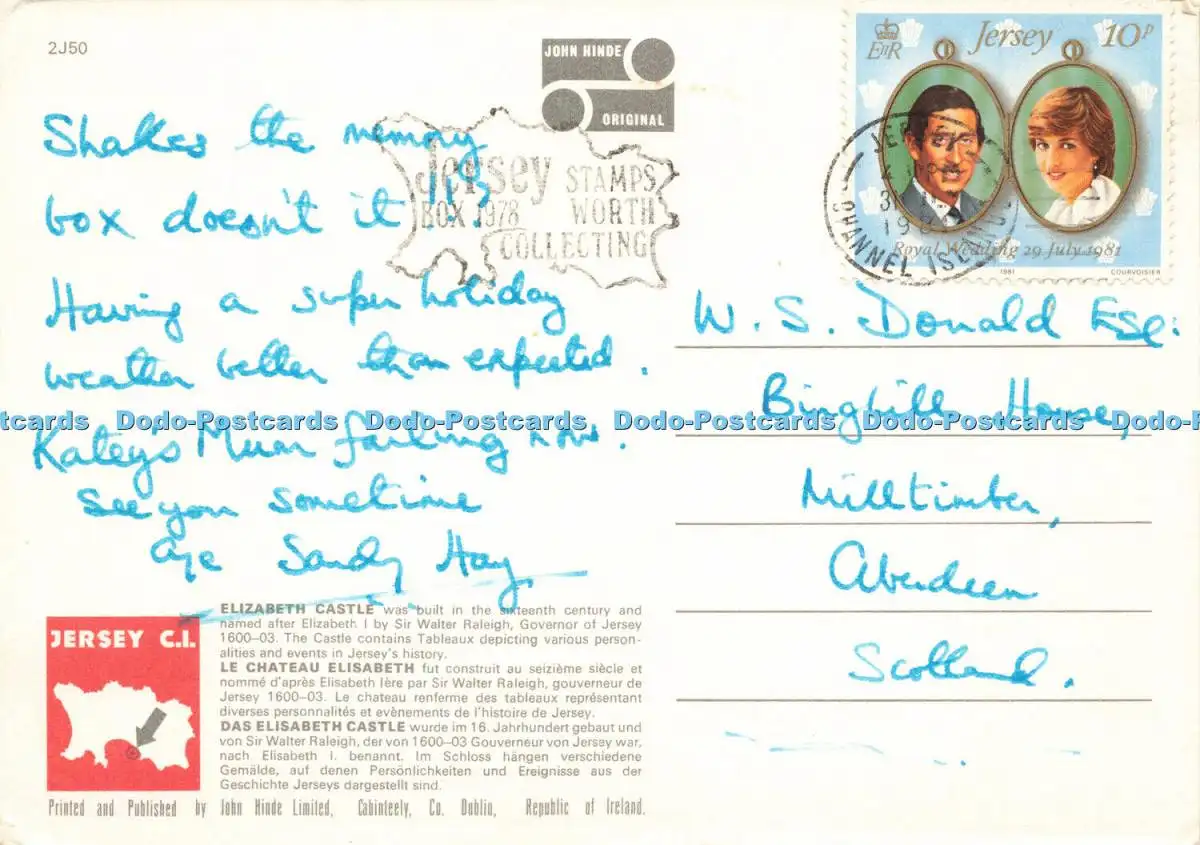 2J50
JOHN HINDE
ORIGINAL
EIIR
Jersey 10p
Royal Wedding 29 July 1981
1981 COURVOISIER
Jersey STAMPS
BOX 1978 WORTH
COLLECTING
JERSEY
CHANNEL ISLANDS
Shakes the memory
box doesn't it !!
Having a super holiday
weather better than expected.
Katey's Mum failing now.
See you sometime
aye Sandy Hay
W. S. Donald Esq:
Binghill House,
Milltimber,
Aberdeen
Scotland.
Dodo-Postcards Dodo-Postcards Dodo-Postcards Dodo-Postcards Dodo-Postcards
JERSEY C.I.
ELIZABETH CASTLE was built in the sixteenth century and
named after Elizabeth I by Sir Walter Raleigh, Governor of Jersey
1600–03. The Castle contains Tableaux depicting various person-
alities and events in Jersey's history.
LE CHATEAU ELISABETH fut construit au seizième siècle et
nommé d'après Elisabeth Ière par Sir Walter Raleigh, gouverneur de
Jersey 1600–03. Le chateau renferme des tableaux représentant
diverses personnalités et evènements de l'histoire de Jersey.
DAS ELISABETH CASTLE wurde im 16. Jahrhundert gebaut und
von Sir Walter Raleigh, der von 1600–03 Gouverneur von Jersey war,
nach Elisabeth I. benannt. Im Schloss hängen verschiedene
Gemälde, auf denen Persönlichkeiten und Ereignisse aus der
Geschichte Jerseys dargestellt sind.
Printed and Published by John Hinde Limited, Cabinteely, Co. Dublin, Republic of Ireland.